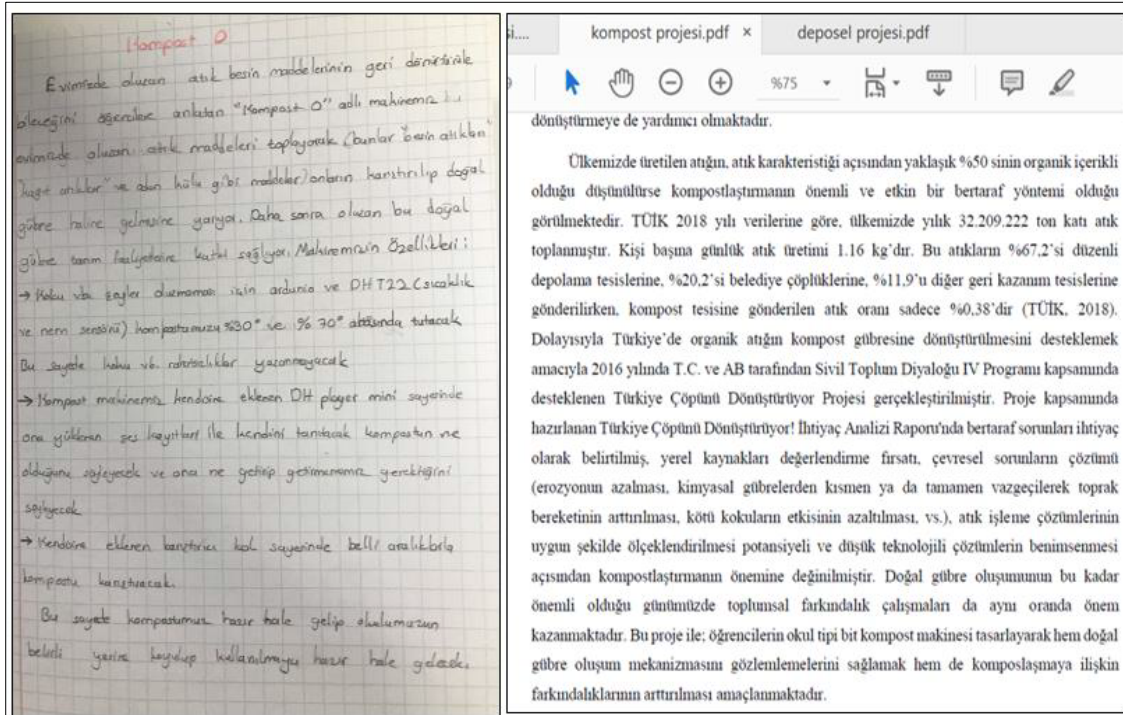 Kompost O
Evimizde oluşan atık besin maddelerinin geri dönüştürüle
bileceğini öğrencilere anlatan "Kompost O" adlı makinemiz
evimizde oluşan atık maddeleri toplayarak (bunlar "besin atıkları"
"kağıt atıklar" ve odun külü gibi maddeler) onların karıştırılıp doğal
gübre haline gelmesine yarıyor. Daha sonra oluşan bu doğal
gübre tarım faaliyetlerine katkı sağlıyor. Makinemizin Özellikleri:
→ Koku vb. şeyler olmaması için ardunio ve DHT22 (sıcaklık
ve nem sensörü) kompostumuzu %30° ve %70° arasında tutacak
Bu sayede koku vb. rahatsızlıklar yaşanmayacak
→ Kompost makinemiz kendisine eklenen DH player mini sayesinde
ona yüklenen ses kayıtları ile kendini tanıtacak kompostun ne
olduğunu söyleyecek ve ona ne getirip getirmememiz gerektiğini
söyleyecek
→ Kendisine eklenen karıştırıcı kol sayesinde belli aralıklarla
kompostu karıştıracak.
Bu sayede kompostumuz hazır hale gelip okulumuzun
belirli yerine koyulup kullanılmaya hazır hale gelecek.
si....
kompost projesi.pdf ×
deposel projesi.pdf
%75
dönüştürmeye de yardımcı olmaktadır.
Ülkemizde üretilen atığın, atık karakteristiği açısından yaklaşık %50 sinin organik içerikli
olduğu düşünülürse kompostlaştırmanın önemli ve etkin bir bertaraf yöntemi olduğu
görülmektedir. TÜİK 2018 yılı verilerine göre, ülkemizde yıllık 32.209.222 ton katı atık
toplanmıştır. Kişi başına günlük atık üretimi 1.16 kg'dır. Bu atıkların %67,2'si düzenli
depolama tesislerine, %20,2'si belediye çöplüklerine, %11,9'u diğer geri kazanım tesislerine
gönderilirken, kompost tesisine gönderilen atık oranı sadece %0,38'dir (TÜİK, 2018).
Dolayısıyla Türkiye'de organik atığın kompost gübresine dönüştürülmesini desteklemek
amacıyla 2016 yılında T.C. ve AB tarafından Sivil Toplum Diyaloğu IV Programı kapsamında
desteklenen Türkiye Çöpünü Dönüştürüyor Projesi gerçekleştirilmiştir. Proje kapsamında
hazırlanan Türkiye Çöpünü Dönüştürüyor! İhtiyaç Analizi Raporu'nda bertaraf sorunları ihtiyaç
olarak belirtilmiş, yerel kaynakları değerlendirme fırsatı, çevresel sorunların çözümü
(erozyonun azalması, kimyasal gübrelerden kısmen ya da tamamen vazgeçilerek toprak
bereketinin arttırılması, kötü kokuların etkisinin azaltılması, vs.), atık işleme çözümlerinin
uygun şekilde ölçeklendirilmesi potansiyeli ve düşük teknolojili çözümlerin benimsenmesi
açısından kompostlaştırmanın önemine değinilmiştir. Doğal gübre oluşumunun bu kadar
önemli olduğu günümüzde toplumsal farkındalık çalışmaları da aynı oranda önem
kazanmaktadır. Bu proje ile; öğrencilerin okul tipi bit kompost makinesi tasarlayarak hem doğal
gübre oluşum mekanizmasını gözlemlemelerini sağlamak hem de komposlaşmaya ilişkin
farkındalıklarının arttırılması amaçlanmaktadır.